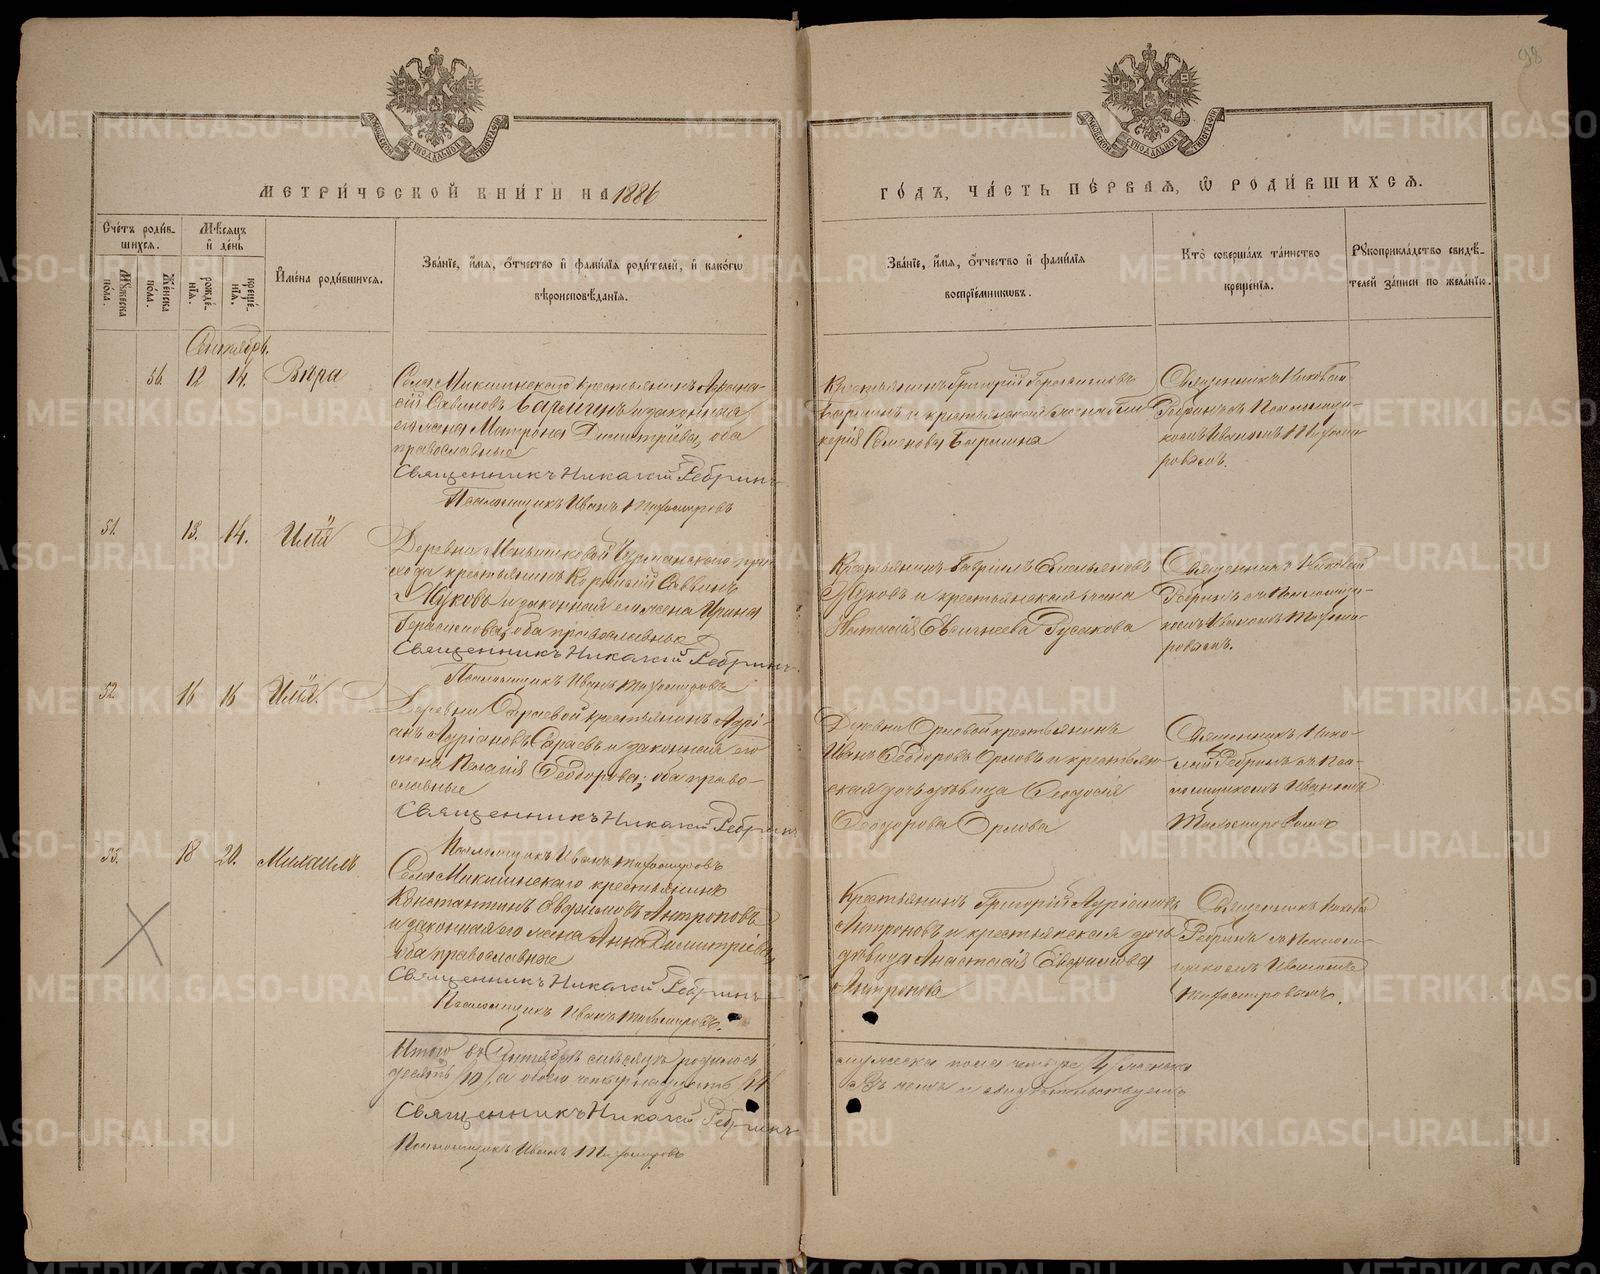 98
МЕТРИЧЕСКОЙ КНИГИ НА 1886
ГОДЪ, ЧАСТЬ ПЕРВАЯ, Ѡ РОДИВШИХСЯ.
Счетъ родившихся.
Мужеска пола.
Женска пола.
Мѣсяцъ и день
рожденія.
крещенія.
Имена родившихся.
Званіе, имя, отчество и фамилія родителей, и какогѡ
вѣроисповѣданія.
Званіе, имя, отчество и фамилія
воспріемниковъ.
Кто совершалъ таинство
крещенія.
Рукоприкладство свидѣтелей записи по желанію.
Сентябрь.
56. 12 14. Вѣра
Села Микшинскаго крестьянинъ Афана-
сій Савиновъ Барышнъ и законная
его жена Матрона Димитріева, оба
православные
Священникъ Николай Ребринъ
Псаломщикъ Иванъ Тихомировъ
Крестьянинъ Григорій Герасимовъ
и крестьянская жена
Семенова
Священникъ Николай
Ребринъ съ Псаломщи-
комъ Иваномъ Тихоми-
ровымъ.
51. 13. 14. Илія
Деревни при-
хода крестьянинъ Саввинъ
Жуковъ и законная его жена Ирина
Герасимова, оба православные
Священникъ Николай Ребринъ
Псаломщикъ Иванъ Тихомировъ
Крестьянинъ Гавріилъ Емельяновъ
Жуковъ и крестьянская жена
Анастасія Евгенеева Русакова
Священникъ Николай
Ребринъ съ Псаломщи-
комъ Иваномъ Тихоми-
ровымъ.
52. 16 16 Илія.
Деревни Сараевой крестьянинъ Адрі-
анъ Адріановъ Сараевъ и законная его
жена Ѳеодорова, оба право-
славные
Священникъ Николай Ребринъ
Псаломщикъ Иванъ Тихомировъ
Деревни Орловой крестьянинъ
Иванъ Ѳеодоровъ Орловъ и крестьян-
ская дочь дѣвица Ѳеодосія
Ѳеодорова Орлова
Священникъ Нико-
лай Ребринъ съ Пса-
ломщикомъ Иваномъ
Тихомировымъ
53. 18 20. Михаилъ
Села Микшинскаго крестьянинъ
Константинъ Евфимовъ Антроповъ
и законная его жена Анна Димитріева
оба православные
Священникъ Николай Ребринъ
Псаломщикъ Иванъ Тихомировъ.
Крестьянинъ Григорій Адріановъ
Антроповъ и крестьянская дочь
дѣвица Анастасія Евфимова
Антропова
Священникъ Никола
Ребринъ съ Псаломщи-
комъ Иваномъ
Тихомировымъ.
Итого въ Сентябрѣ мѣсяцѣ родилось
мужеска пола четыре 4, женска
десять /10/, а обоего четырнадцать 14
въ чемъ и свидѣтельствуемъ
Священникъ Николай Ребринъ
Псаломщикъ Иванъ Тихомировъ
METRIKI.GASO-URAL.RU